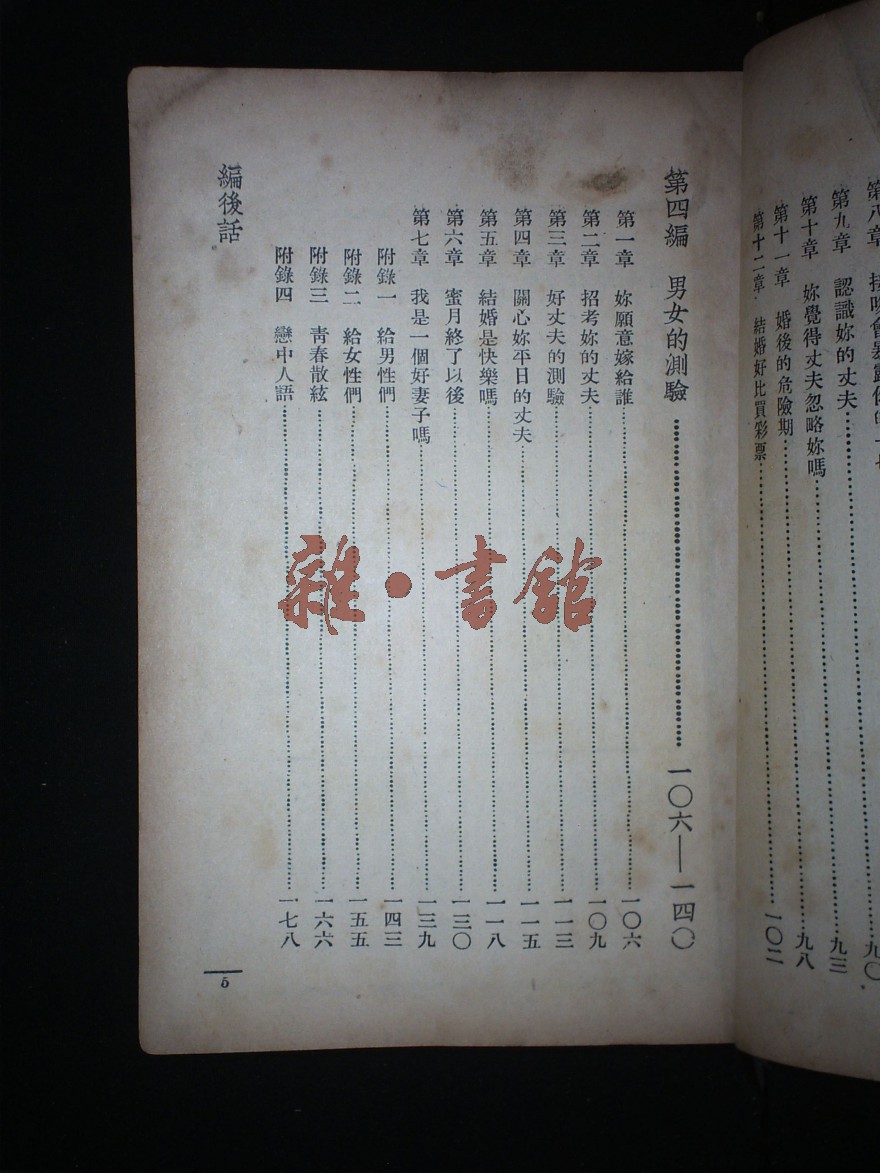 第八章 接吻會暴露你的一切……九〇
第九章 認識妳的丈夫……九三
第十章 妳覺得丈夫忽略妳嗎……九八
第十一章 婚後的危險期
第十二章 結婚好比買彩票……一〇二
第四編 男女的測驗……一〇六—一四〇
第一章 妳願意嫁給誰……一〇六
第二章 招考妳的丈夫……一〇九
第三章 好丈夫的測驗……一一三
第四章 關心妳平日的丈夫……一一五
第五章 結婚是快樂嗎……一一八
第六章 蜜月終了以後……一三〇
第七章 我是一個好妻子嗎……一三九
附錄一 給男性們……一四三
附錄二 給女性們……一五五
附錄三 青春散絃……一六六
附錄四 戀中人語……一七八
編後話
5
雜·書館